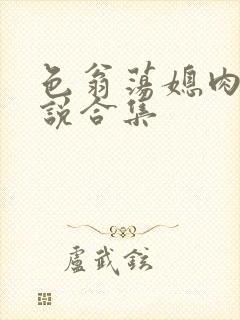 色翁荡媳肉
说合集
盧武鉉